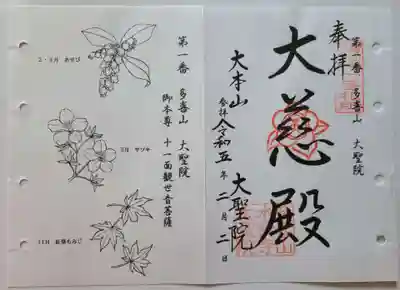 奉拝
第一番 多喜山 大聖院
大慈殿
大本山 大聖院
参拝令和五年二月二日
第一番 多喜山 大聖院
御本尊 十一面観世音菩薩
2・3月 あせび
5月 サツキ
11月 紅葉もみじ